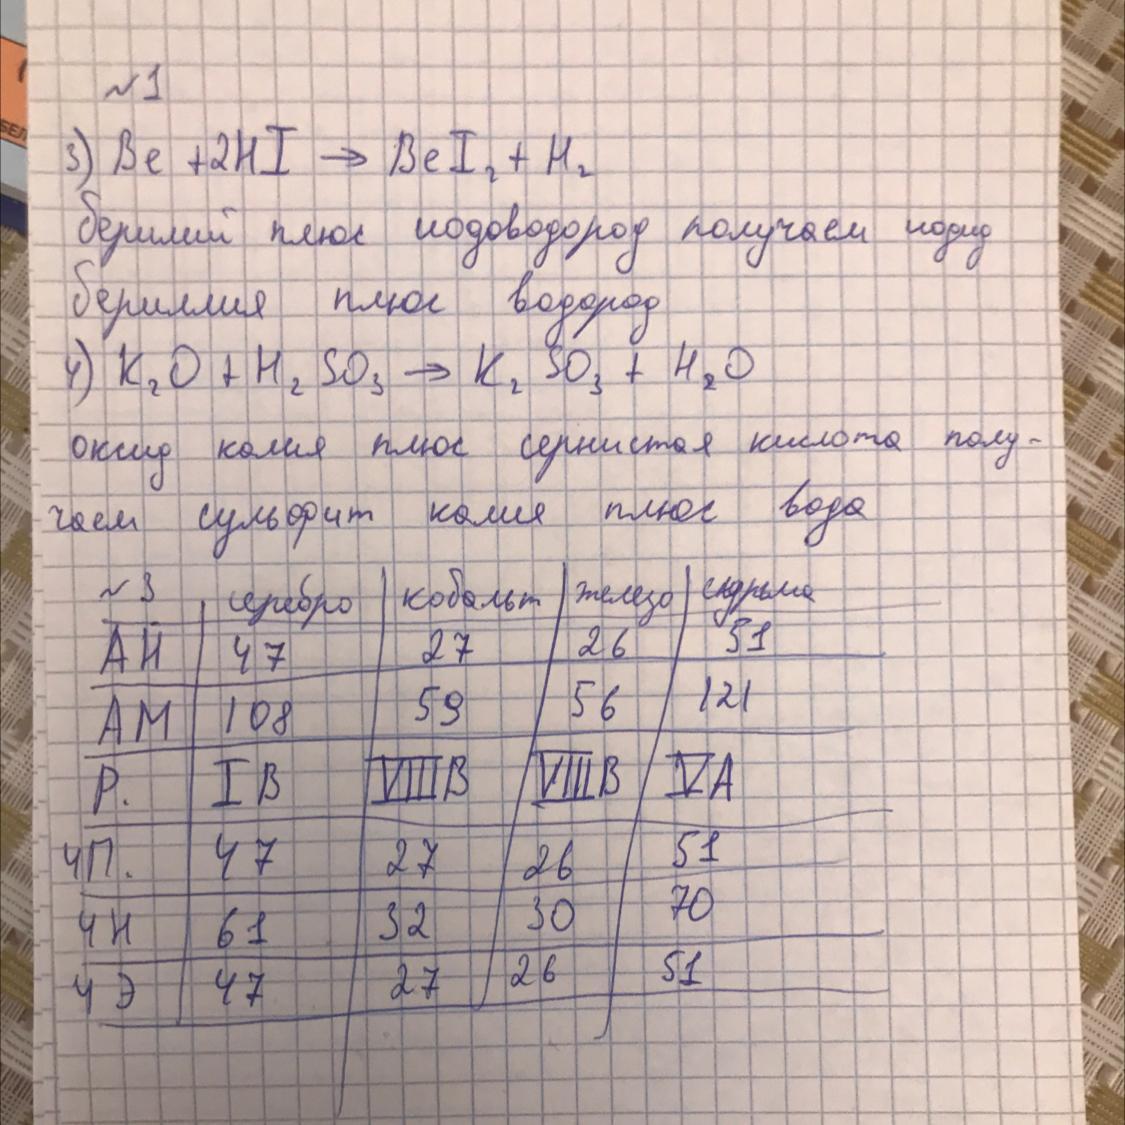 №1
3) Be + 2HI → BeI₂ + H₂
берилий плюс иодоводород получаем иодид
бериллия плюс водород
4) K₂O + H₂SO₃ → K₂SO₃ + H₂O
оксид калия плюс сернистая кислота полу-
чаем сульфит калия плюс вода
№3 серебро кобальт железо сурьма
АН 47 27 26 51
АМ 108 59 56 121
Р. IB VIIIB VIIIB VA
ЧП. 47 27 26 51
ЧН 61 32 30 70
ЧЭ 47 27 26 51